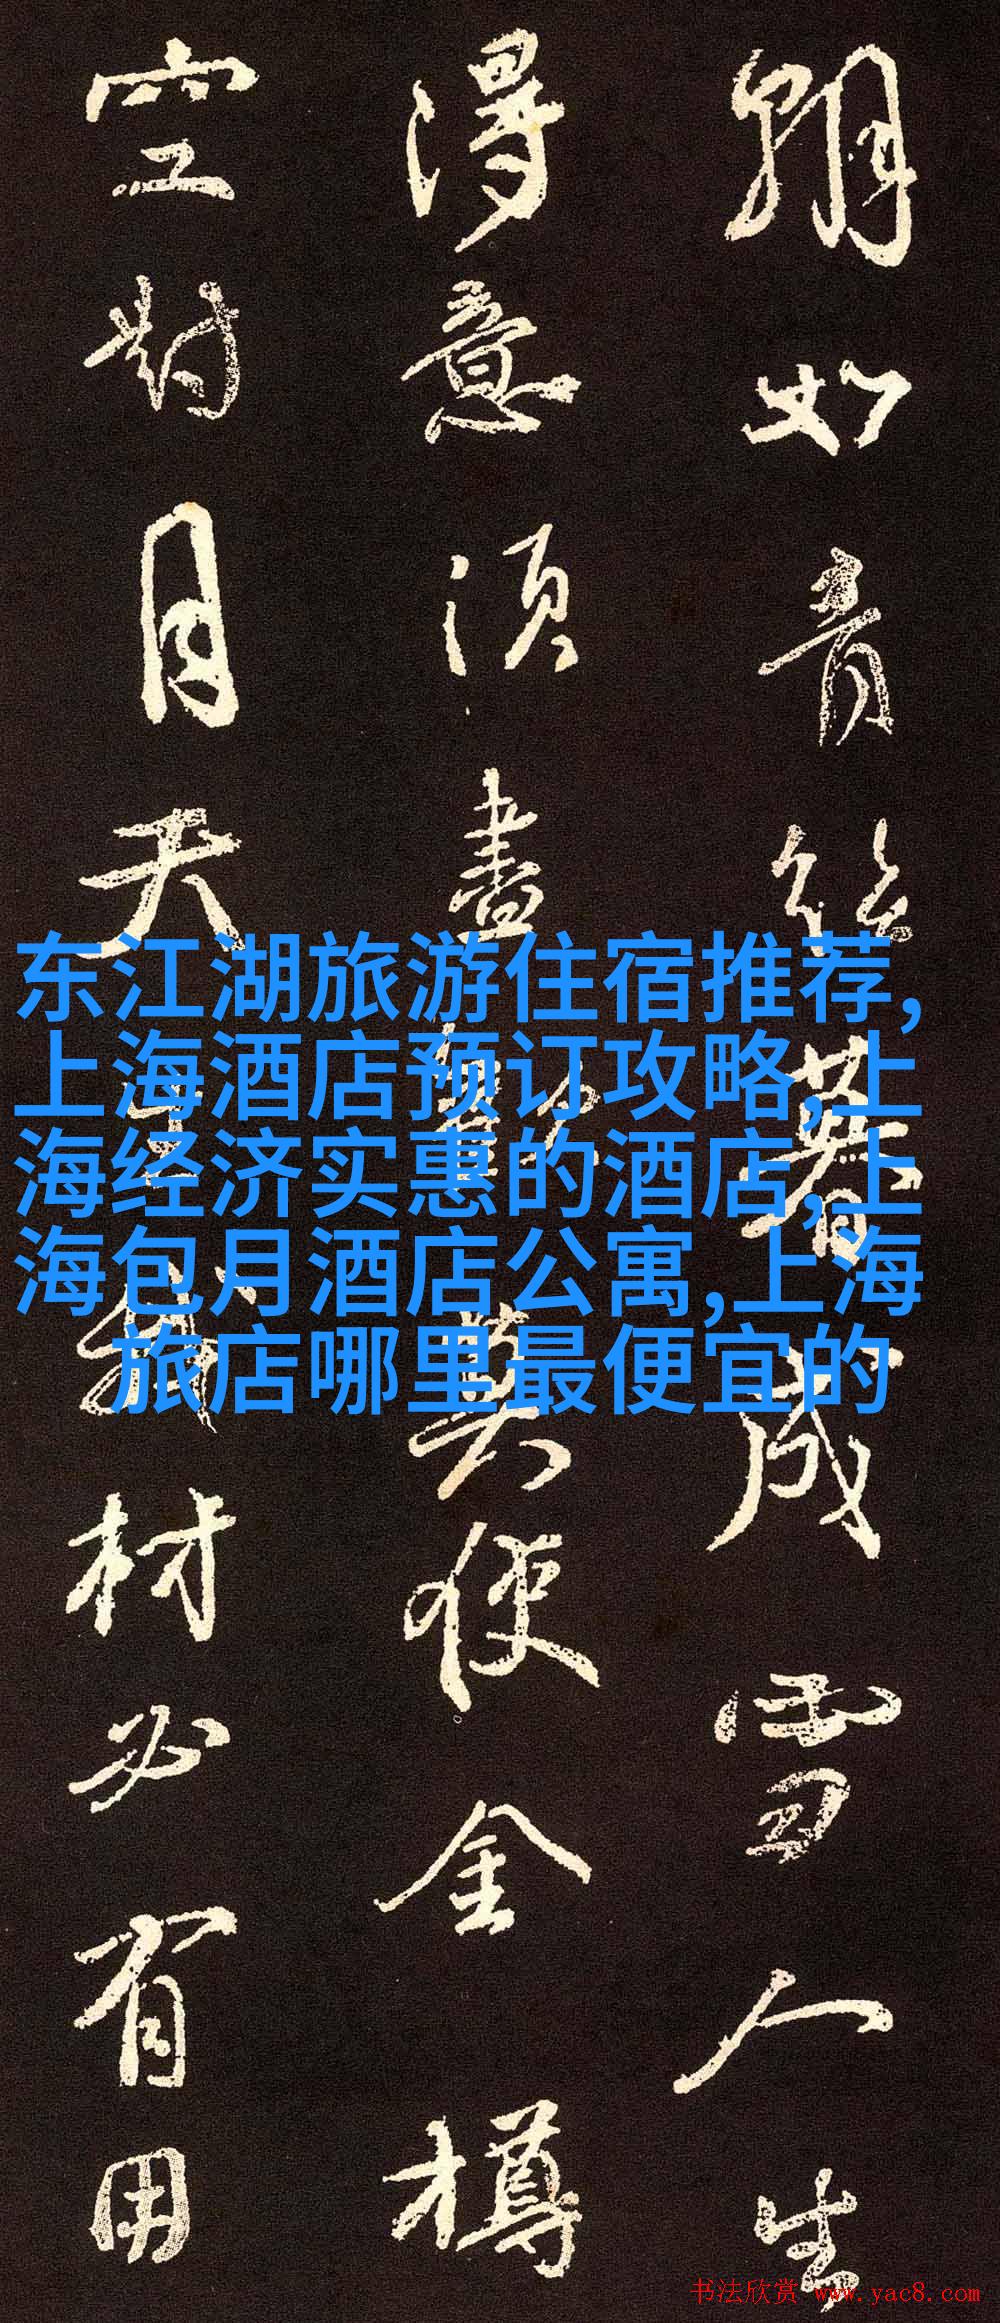 朝如青丝暮成雪人生
得意须尽欢莫使金樽
空对月天生我材必有用
东江湖旅游住宿推荐,
上海酒店预订攻略,上
海经济实惠的酒店,上
海包月酒店公寓,上海
旅店哪里最便宜的
书法欣赏 www.yac8.com